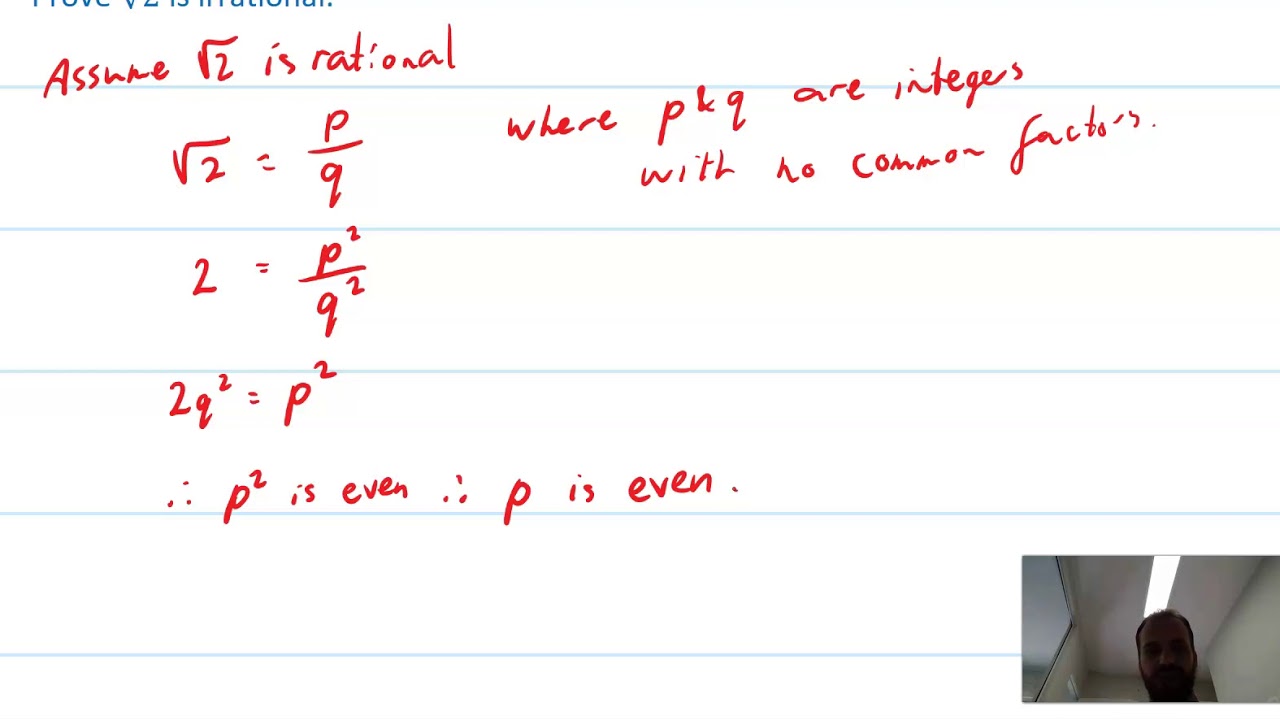 Prove √2 is irrational.
Assume √2 is rational
√2 = p/q where p & q are integers
with no common factors.
2 = p²/q²
2q² = p²
∴ p² is even ∴ p is even.